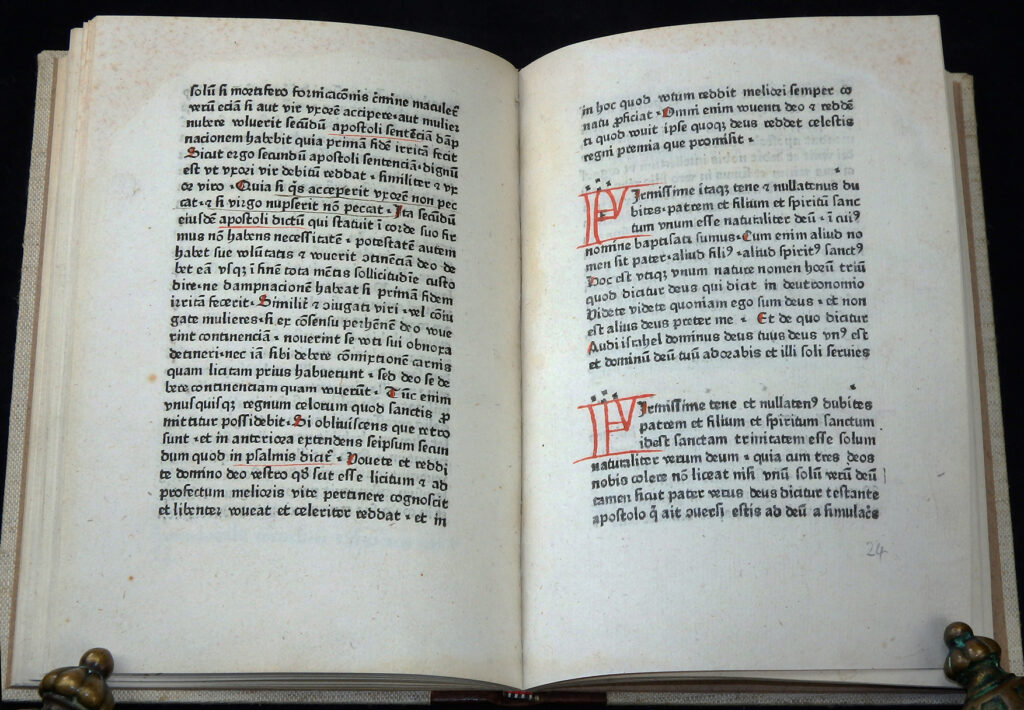 solũ si mortifero fornicacõnis cr̃mine maculet᷑
verũ eciã si aut vir vxorẽ accipere·aut mulier
nubere voluerit secũdũ apostoli sentẽciã dãp
nacionem habebit quia primã fidẽ irritã fecit
Sicut ergo secundũ apostoli sentenciã·dignũ
est vt vxori vir debitũ reddat · similiter ⁊ vx
or viro · Quia si qͥs acceperit vxorẽ non pec
cat·⁊ si virgo nupserit nõ peccat · Ita secũdũ
eiusdẽ apostoli dictũ qui statuit ĩ corde suo fir
mus nõ habens necessitatẽ · potestatẽ autem
habet sue volũtatis ⁊ vouerit ↄtinẽciã deo de
bet eã vsqꝫ ĩ finẽ tota mẽtis sollicitudĩe custo
dire·ne dampnacionẽ habeat si primã fidem
irritã fecerit · Similit᷑ ⁊ ↄiugati viri · vel cõiu
gate mulieres·si ex cõsensu perhẽnẽ deo voue
rint continenciã · nouerint se voti sui obnoxa
detineri·nec iã sibi debere cõmixtionẽ carnis
quam licitam prius habuerunt · sed deo se de
bere continenciam quam vouerũt · Tũc enim
vnusquisqꝫ regnum celorum quod sanctis ꝓ
mittitur possidebit·Si obliuiscens que retro
sunt · et in anteriora extendens seipsum secun
dum quod in psalmis dicit᷑ · Vouete et reddi
te domino deo vestro qð scit esse licitum ⁊ ad
profectum melioris vite pertinere cognoscit
et libenter voueat et celeriter reddat · et in
in hoc quod votum reddit meliori semper co
natu proficiat · Omni enim vouenti deo ⁊ reddẽ
ti quod vouit ipse quoqꝫ deus reddet celestis
regni premia que promisit ·
Firmissime itaqꝫ tene ⁊ nullatenus du
bites·patrem et filium et spiritũ sanc
tum vnum esse naturaliter deũ · ĩ cuiꝰ
nomine baptisati sumus·Cum enim aliud no
men sit pater·aliud filiꝰ·aliud spiritꝰ sanctꝰ
hoc est vtiqꝫ vnum nature nomen horũ triũ
quod dicitur deus qui dicat in deutronomio
Videte videte quoniam ego sum deus · et non
est alius deus preter me · Et de quo dicitur
Audi israhel dominus deus tuus deus vnꝰ est
et dominũ deũ tuũ adorabis et illi soli seruies
Firmissime tene et nullatenꝰ dubites
patrem et filium et spiritum sanctum
idest sanctam trinitatem esse solum
naturaliter verum deum · quia cum tres deos
nobis colere nõ liceat nisi vnũ solũ verũ deũ
tamen sicut pater verus deus dicitur testante
apostolo q̃ ait ↄuersi estis ad deũ a simulac̃s
24